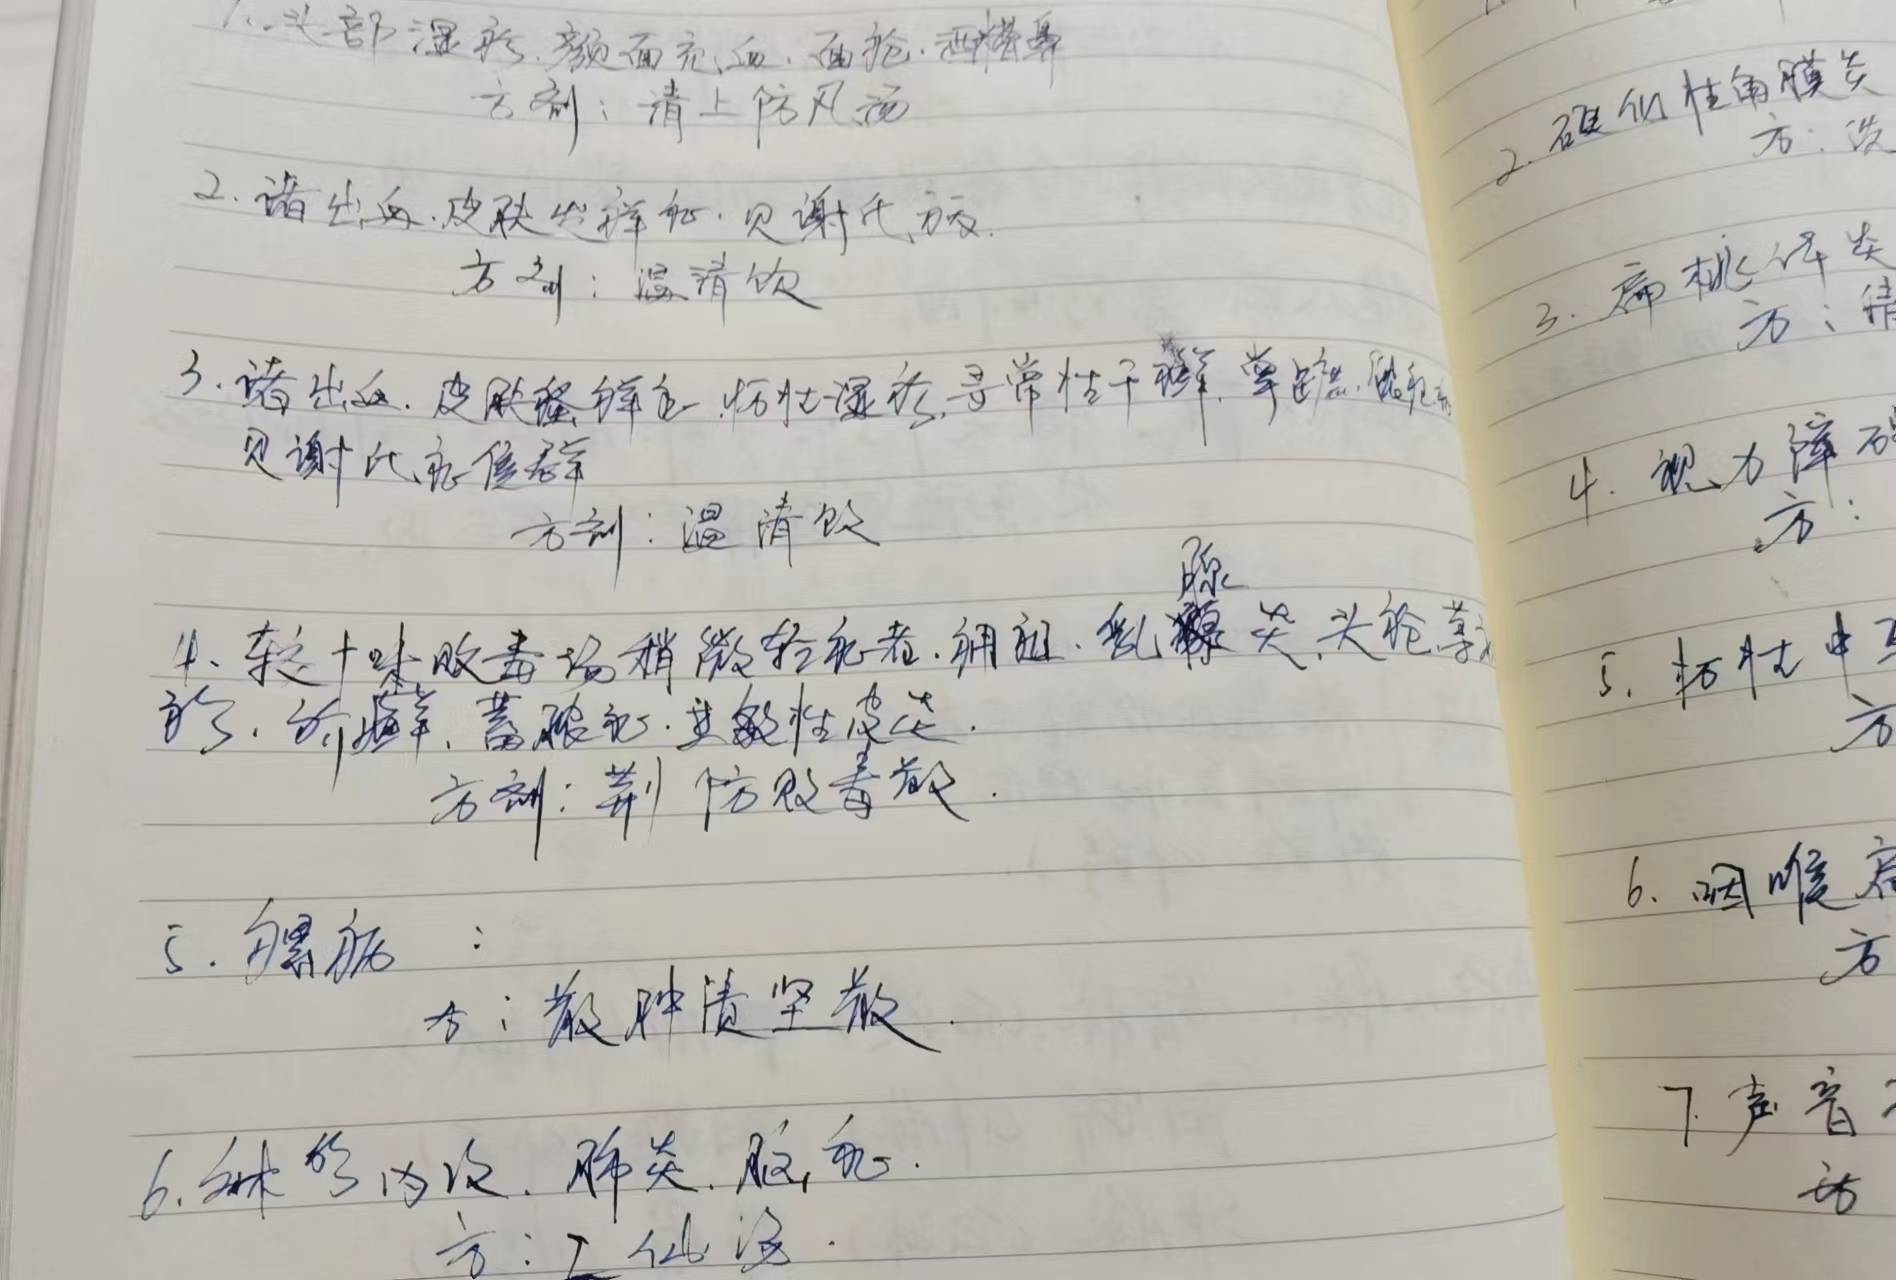 1. 头部湿疹.颜面充血.面疱.酒糟鼻
方剂：清上防风汤
2. 诸出血.皮肤发痒症.贝谢氏
方剂：温清饮
3. 诸出血.皮肤瘙痒症.湿疹.寻常性干癣.荨
贝谢氏症候群
方剂：温清饮
4. 较十味败毒汤稍微轻症者.痈疽.乳腺炎.头疮
疥癣.蓄脓症.过敏性皮炎.
方剂：荆防败毒散.
5. 瘰疬：
方：散肿溃坚散.
6. 麻疹内攻.肺炎.脑症.
方：仙汤.
2. 角膜炎
方：洗
3. 扁桃体炎
方：清
4. 视力障碍
方：
5. 中耳
方
6. 咽喉
方
7. 声音
方